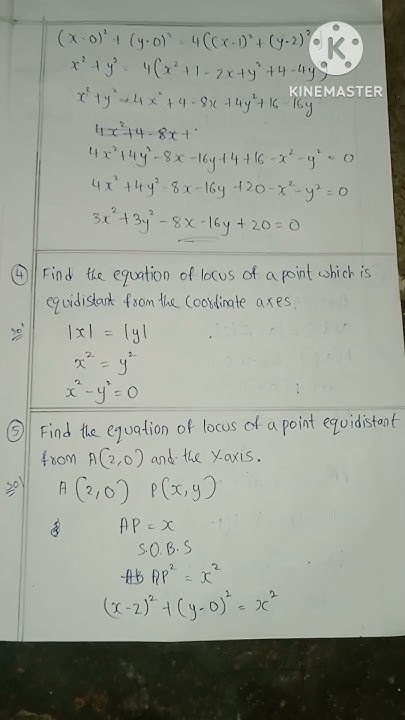 (x-0)² + (y-0)² = 4((x-1)² + (y-2)²
KINEMASTER
x² + y² = 4(x² + 1 - 2x + y² + 4 - 4y)
x² + y² = 4x² + 4 - 8x + 4y² + 16 - 16y
4x² + 4 - 8x +
4x² + 4y² - 8x - 16y + 4 + 16 - x² - y² = 0
4x² + 4y² - 8x - 16y + 20 - x² - y² = 0
3x² + 3y² - 8x - 16y + 20 = 0
④ Find the equation of locus of a point which is
equidistant from the coordinate axes.
sol |x| = |y|
x² = y²
x² - y² = 0
⑤ Find the equation of locus of a point equidistant
from A(2,0) and the Y-axis.
sol A (2,0) P(x,y)
AP = x
S.O.B.S
AB AP² = x²
(x-2)² + (y-0)² = x²